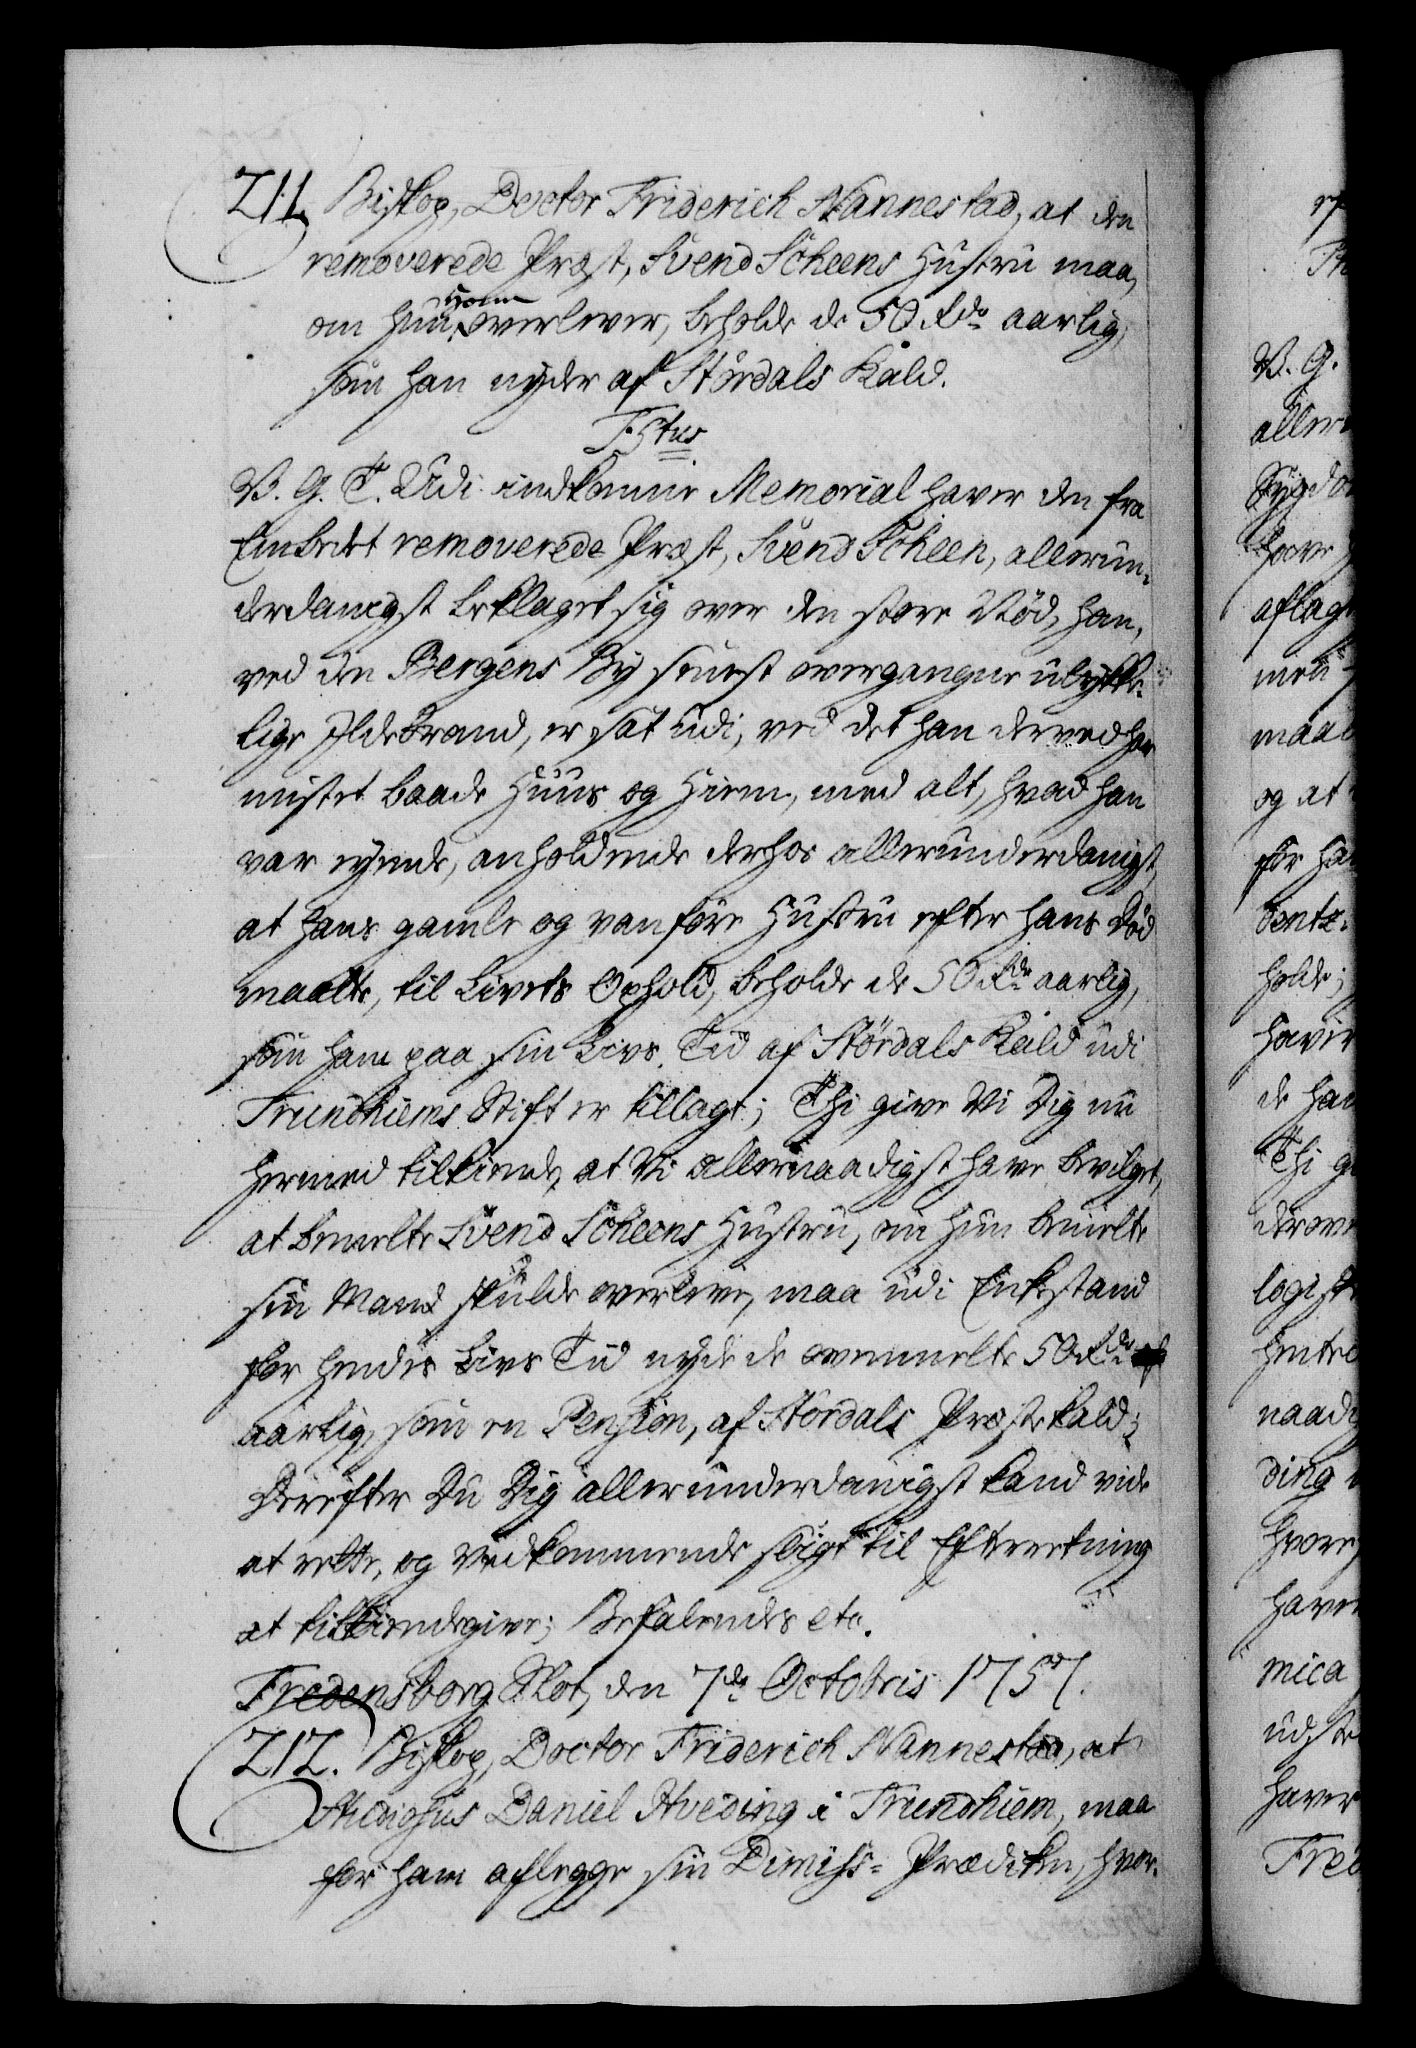 211. Biskop, Doctor Friderich Nannestad, at den
removerede Præst, Svend Scheens Hustru maa,
om hun ham overlever, beholde de 50 Rdr. aarlig,
som han nyder af Størdals Kald.
F5tus
V. G. T. Udi indkomne Memorial haver den fra
Embedet removerede Præst, Svend Scheen, allerun-
derdanigst beklaget sig over den store Nød, han,
ved den Bergens By sidst overgangne ulykke-
lige Ildebrand, er sat udi, ved det han derved har
mistet baade Huus og Hiem, med alt, hvad han
var eyende, anholdende derhos allerunderdanigst,
at hans gamle og vanføre Hustru efter hans Død
maatte, til Livets Ophold, beholde de 50 Rdr. aarlig,
som ham paa sin Livs Tid af Størdals Kald udi
Trundhiems Stift er tillagt; Thi give Vi Dig nu
hermed tilkiende, at Vi allernaadigst have bevilget,
at bemelte Svend Scheens Hustru, om hun bemelte
sin Mand skulde overleve, maa udi Enkestand
for hendes Livs Tid nyde de ovenmelte 50 Rdr.
aarlig, som en Pension, af Størdals Præstekald;
Derefter Du Dig allerunderdanigst kand vide
at rette, og Vedkommende sligt til Efterretning
at tilkiendegive; Befalendes etc.
Fredensborg Slot, den 7de Octobris 1757.
212. Biskop, Doctor Friderich Nannestad, at
Studiosus Daniel Hveding i Trundhiem, maa
for ham aflegge sin Dimiss-Prædiken, hvor-